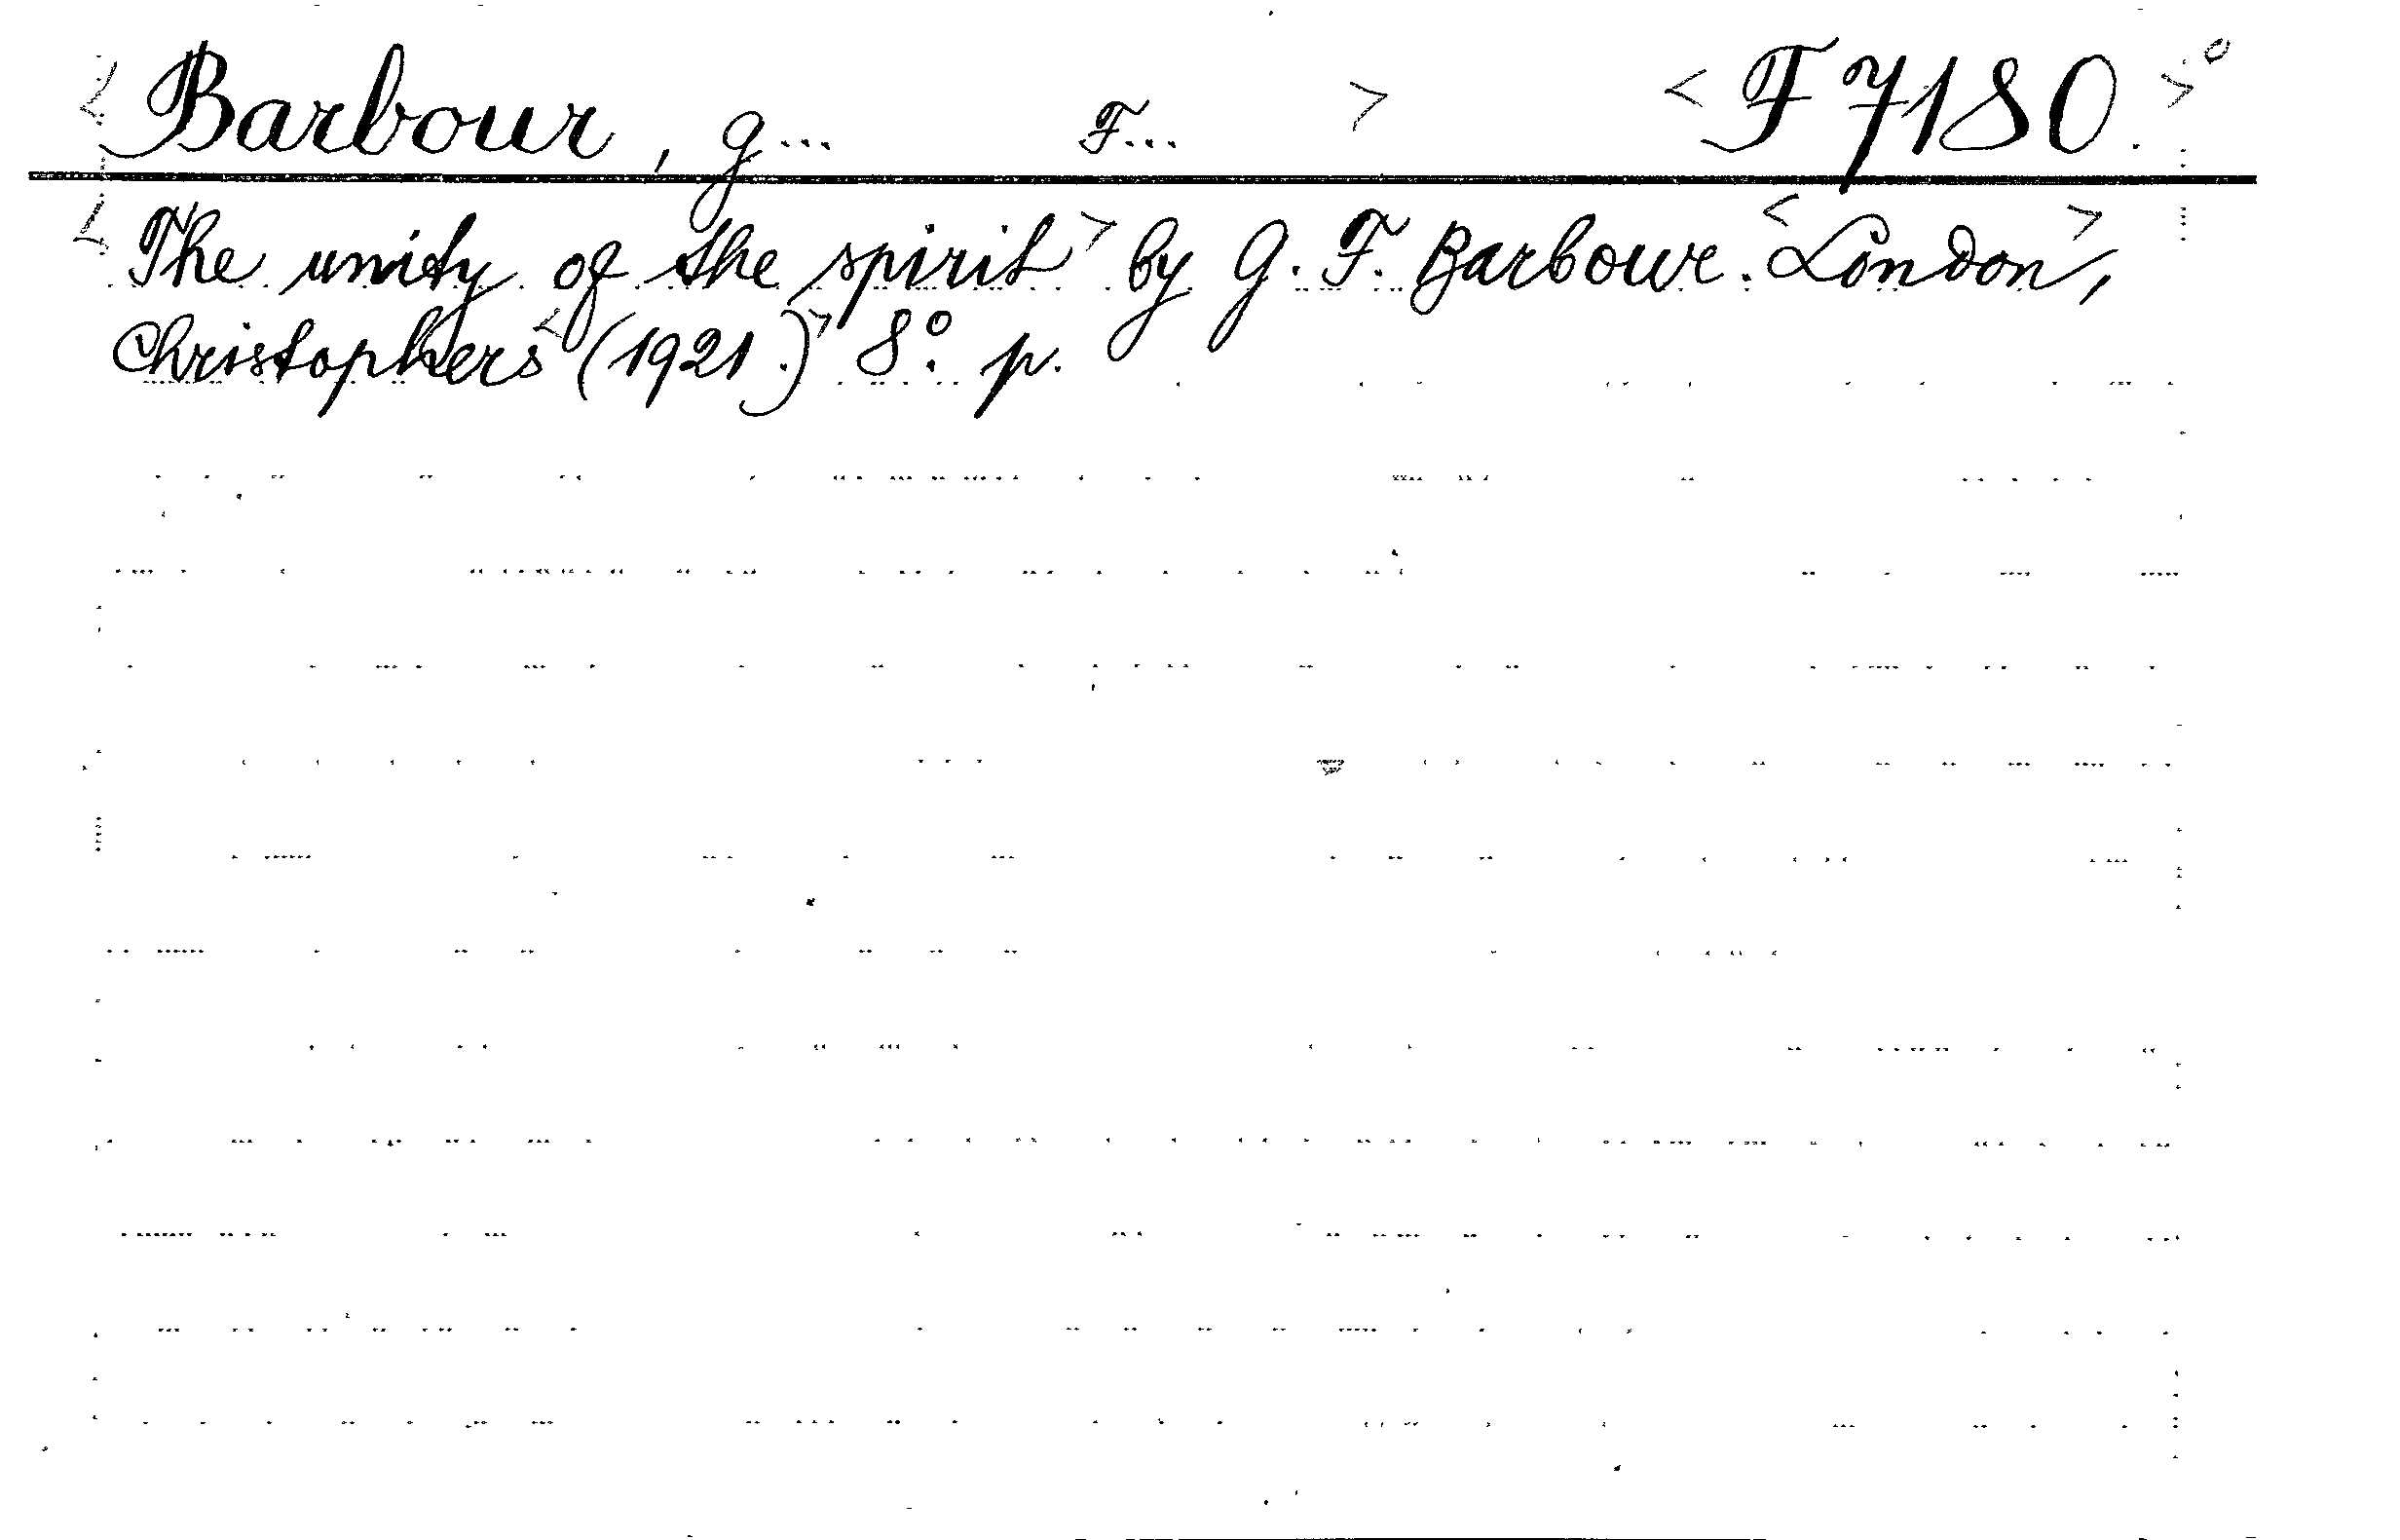 < Barbour, G... F... > < F 7180. >°
< The unity of the spirit > by G. F. Barbour. < London >,
Christophers < (1921.) > 8°. p.